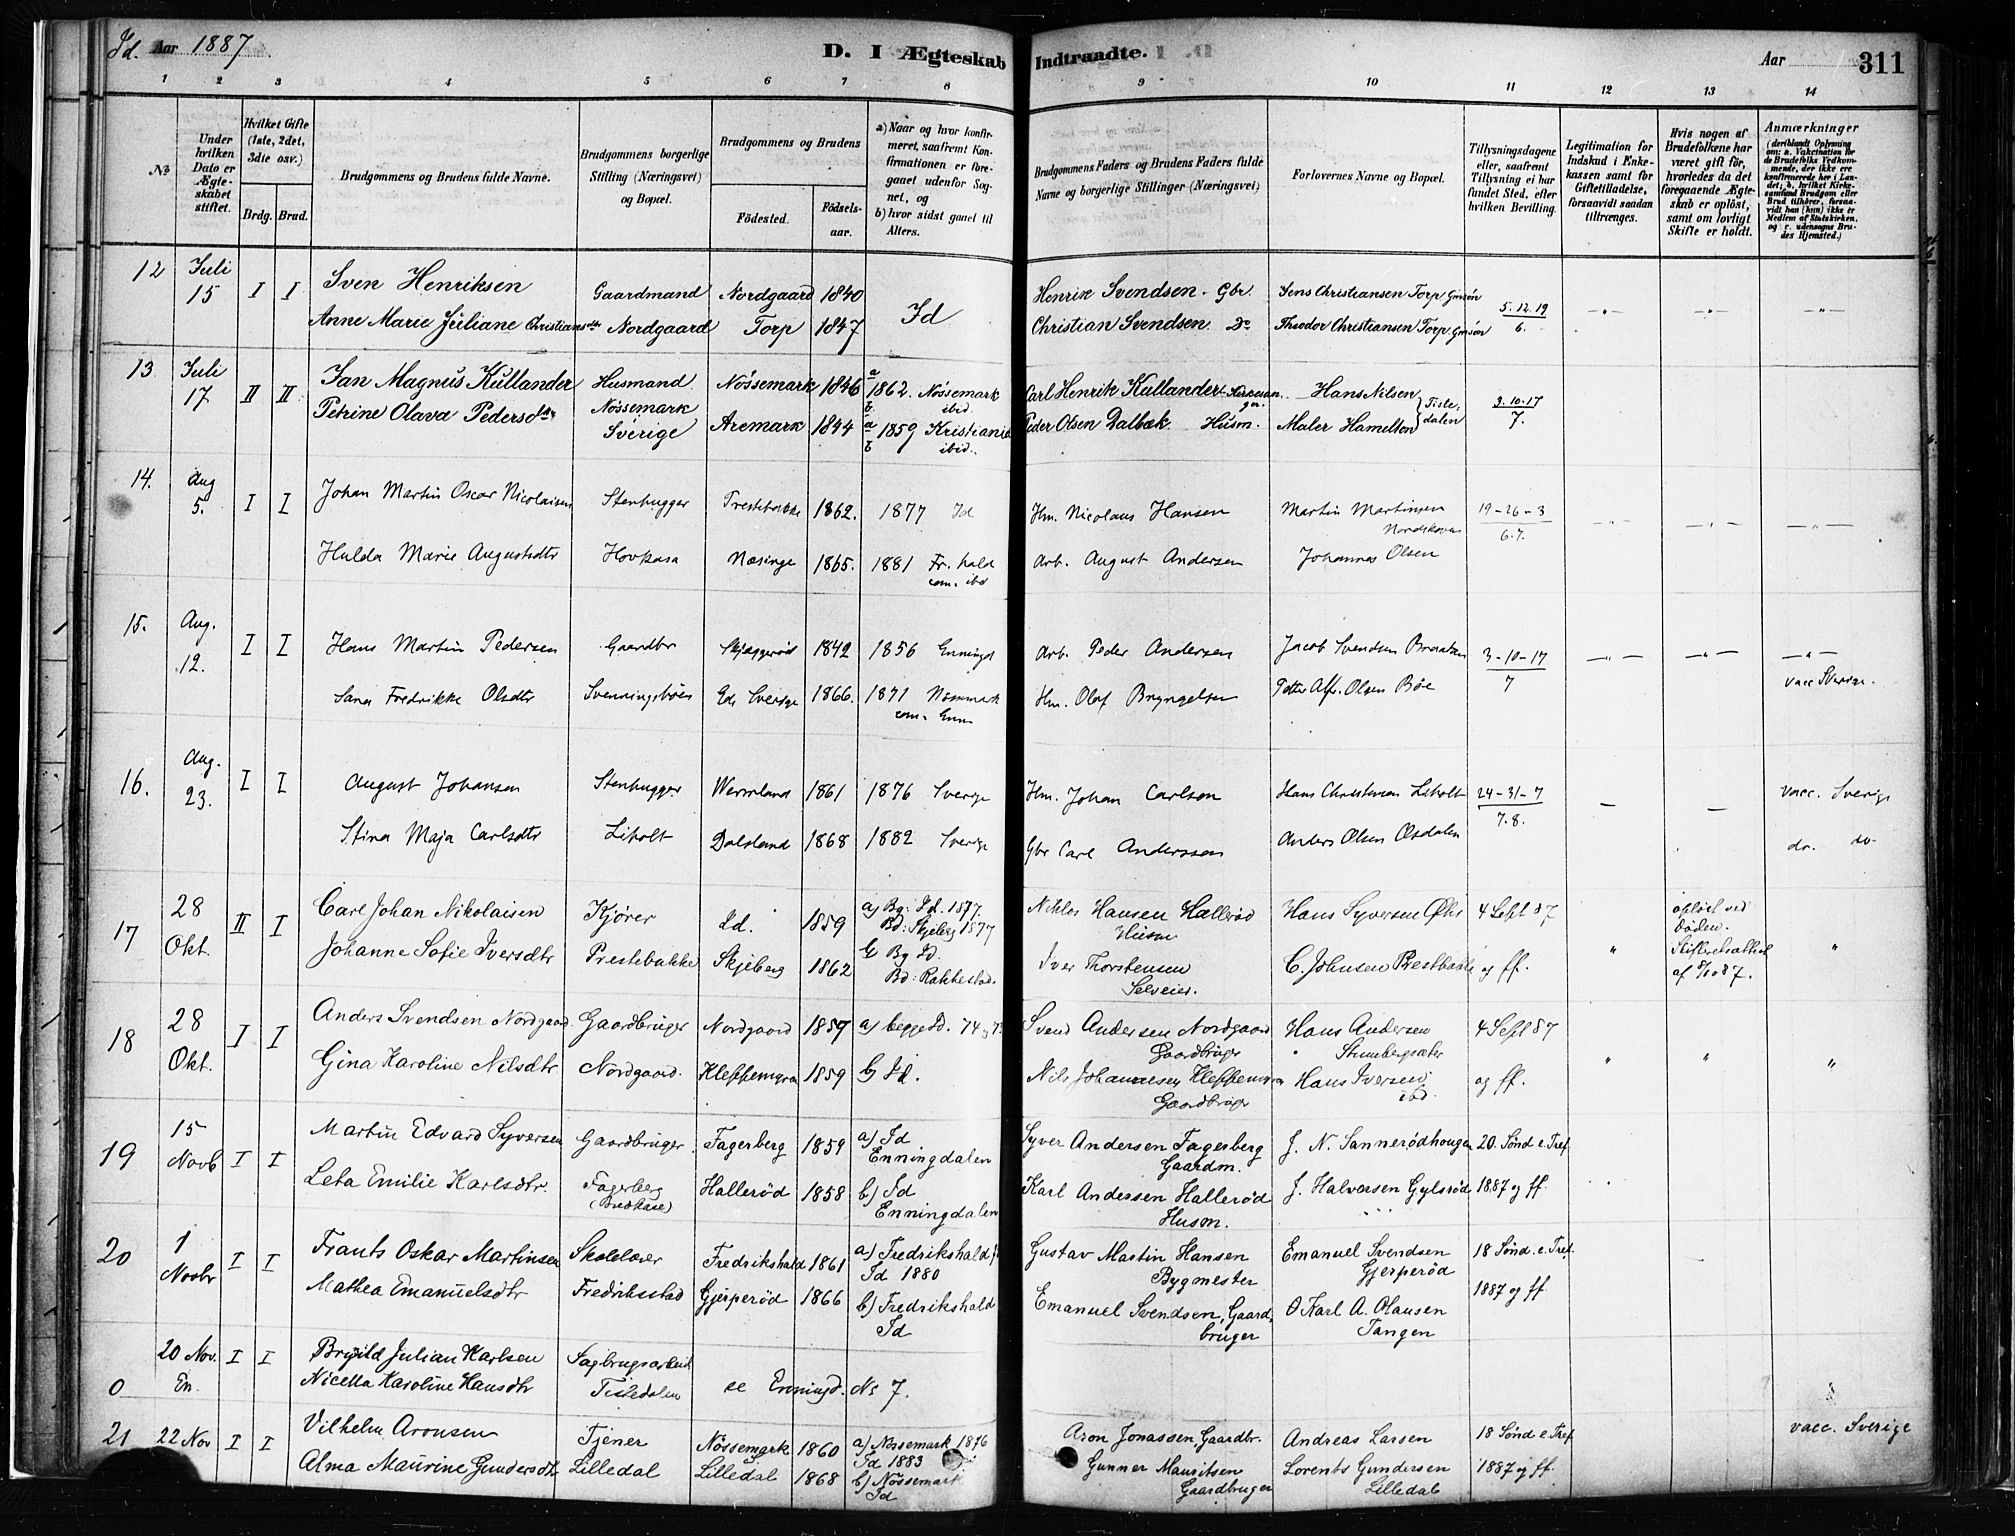 Id. Aar 1887
D. I Ægteskab Indtraadte.
Aar
311
1 2 3 4 5 6 7 8 9 10 11 12 13 14
No
Under hvilken Dato er Ægteskabet stiftet.
Hvilket Gifte (1ste, 2det, 3die osv.)
Brdg. Brud.
Brudgommens og Brudens fulde Navne.
Brudgommens borgerlige Stilling (Næringsvei) og Bopæl.
Brudgommens og Brudens
Fødested.
Fødselsaar.
a) Naar og hvor konfirmeret, saafremt Konfirmationen er foregaaet udenfor Sognet, og
b) hvor sidst gaaet til Alters.
Brudgommens Faders og Brudens Faders fulde Navne og borgerlige Stillinger (Næringsvei)
Forlovernes Navne og Bopæl.
Tillysningsdagene eller, saafremt Tillysning ei har fundet Sted, efter hvilken Bevilling.
Legitimation for Indskud i Enkekassen samt for Giftetilladelse, forsaavidt saadan tiltrænges.
Hvis nogen af Brudefolkene har været gift før, hvorledes da det foregaaende Ægteskab er opløst, samt om lovligt Skifte er holdt.
Anmærkninger (deriblandt Oplysning om: a. Vakcination for de Brudefolks Vedkommende, der ikke ere konfirmerede her i Landet; b. hvilket Kirkesamfund Brudgom eller Brud tilhører, forsaavidt han (hun) ikke er Medlem af Statskirken, og c. udensogns Brudes Hjemsted.)
12 Juli 15 I I Sven Henriksen Gaardmand Nordgaard 1840 Id Henrik Svendsen. Gbr. Jens Christiansen Torp 5. 12. 19 —„— —„— —„—
Anne Marie Juliane Christiansdtr Nordgaard Torp 1847 Christian Svendsen. Do Theodor Christiansen Torp 6.
13. Juli 17 II II Jan Magnus Kullander Husmand Nössemark 1846 a 1862. Nössemark b. ibid Carl Henrik Kullander Hans Nilsen 3. 10. 17
Petrine Olava Pedersdtr Nössemark Sverige Aremark 1844 a 1859 Kristiania b ibid. Peder Olsen Dalbæk. Husm. Maler Hamelton Tistedalen 7.
14. Aug 5. I I Johan Martin Oscar Nicolaisen Stenhugger Prestebakke 1862. 1877 Id Hm. Nicolaus Hansen Martin Martinsen 19-26-3 —„— —„— —„—
Hulda Marie Augustdtr Hovkasa Næsinge 1865. 1881 Fr.hald com. ibd Arb. August Andersen Johannes Olsen 6.7.
15. Aug. 12. I I Hans Martin Pedersen Gaardbr Skjæggerød 1842 1856 Enningd Arb. Peder Andersen Jacob Svendsen Braaten 3-10-17 —„— —„— —„—
Sana Fredrikke Olsdtr Svenningsbøen Ede Sverige 1866. 1871 Nössemark com. Enn Hm. Olof Bryngelsen Petter Alfr. Olsen Bøe 7 vacc Sverige.
16. Aug. 23. I I August Johansen Stenhugger Wermland 1861 1876 Sverige Hm. Johan Carlson Hans Christensen Liholt 24-31-7 — — vacc. Sverige
Stina Maja Carlsdtr Liholt Dalsland 1868 1882 Sverige Gbr Carl Andersson Anders Olsen Øsdalen 7.8. do. do
17 28 Okt. II I Carl Johan Nikolaisen Kjører Id. 1859 a) Bg: Id. 1877. Bd: Skjeberg 1877 Niklos Hansen Hallerød Husm Hans Syversen 4 Sept 87 opløst ved døden.
Johanne Sofie Iversdtr Prestebakke Skjeberg 1862 b) Bg Id. Bd: Rakkestad. Iver Thorstensen Selveier. C. Johnsen Prestbakke og ff. „ Skifteretsattest af 8/10 87. „
18 28 Okt. I I Anders Svendsen Nordgaard. Gaardbruger Nordgaard 1859 a) begge Id. 74 Svend Andersen Nordgaard Gaardbruger Hans Andersen 4 Sept 87
Gina Karoline Nilsdtr Nordgaard. Kleppemyra 1859 b) Id. Nils Johannesen Kleppemyra Gaardbruger Hans Iversen ibd. og ff. „ „ „
19 15 Novb I I Martin Edvard Syversen Gaardbruger. Fagerberg 1859 a) Id Enningdalen Syver Andersen Fagerberg Gaardm. J. N. Sannerødhaugen 20. Sønd e. Tref
Leta Emilie Karlsdtr. Fagerberg (Budkase) Hallerød 1858 b) Id Enningdalen Karl Andersen Hallerød Husm. J. Halversen Gylsrød 1887 og ff.
20 1 Novbr I I Frants Oskar Martinsen Skolelærer Fredrikshald 1861 a) Fredrikshald Id 1880 Gustav Martin Hansen Bygmester Emanuel Svendsen Gjerperød 18 Sønd. e. Tref.
Mathea Emanuelsdtr Fredriksstad Gjerperød 1866 b) Fredrikshald Id Emanuel Svendsen, Gaardbruger O Karl A. Olausen Tangen 1887 og ff.
0 20 Nov. En. I I Brynild Julian Karlsen Sagbrugsarbeid.
Nicella Karoline Hansdtr Tistedalen se Enningd. No 7.
21 22 Nov I I Vilhelm Aronsen Tjener Nössemark 1860 a) Nössemark 1876 Id 1883 Aron Jonassen, Gaardbr. Andreas Larsen 18 Sønd e. Tref vacc. Sverige
Alma Maurine Gundersdtr Lilledal Lilledal 1868 b) Nössemark Id Gunner Mauritsen Gaardbruger Lorents Gundersen Lilledal 1887 og ff.